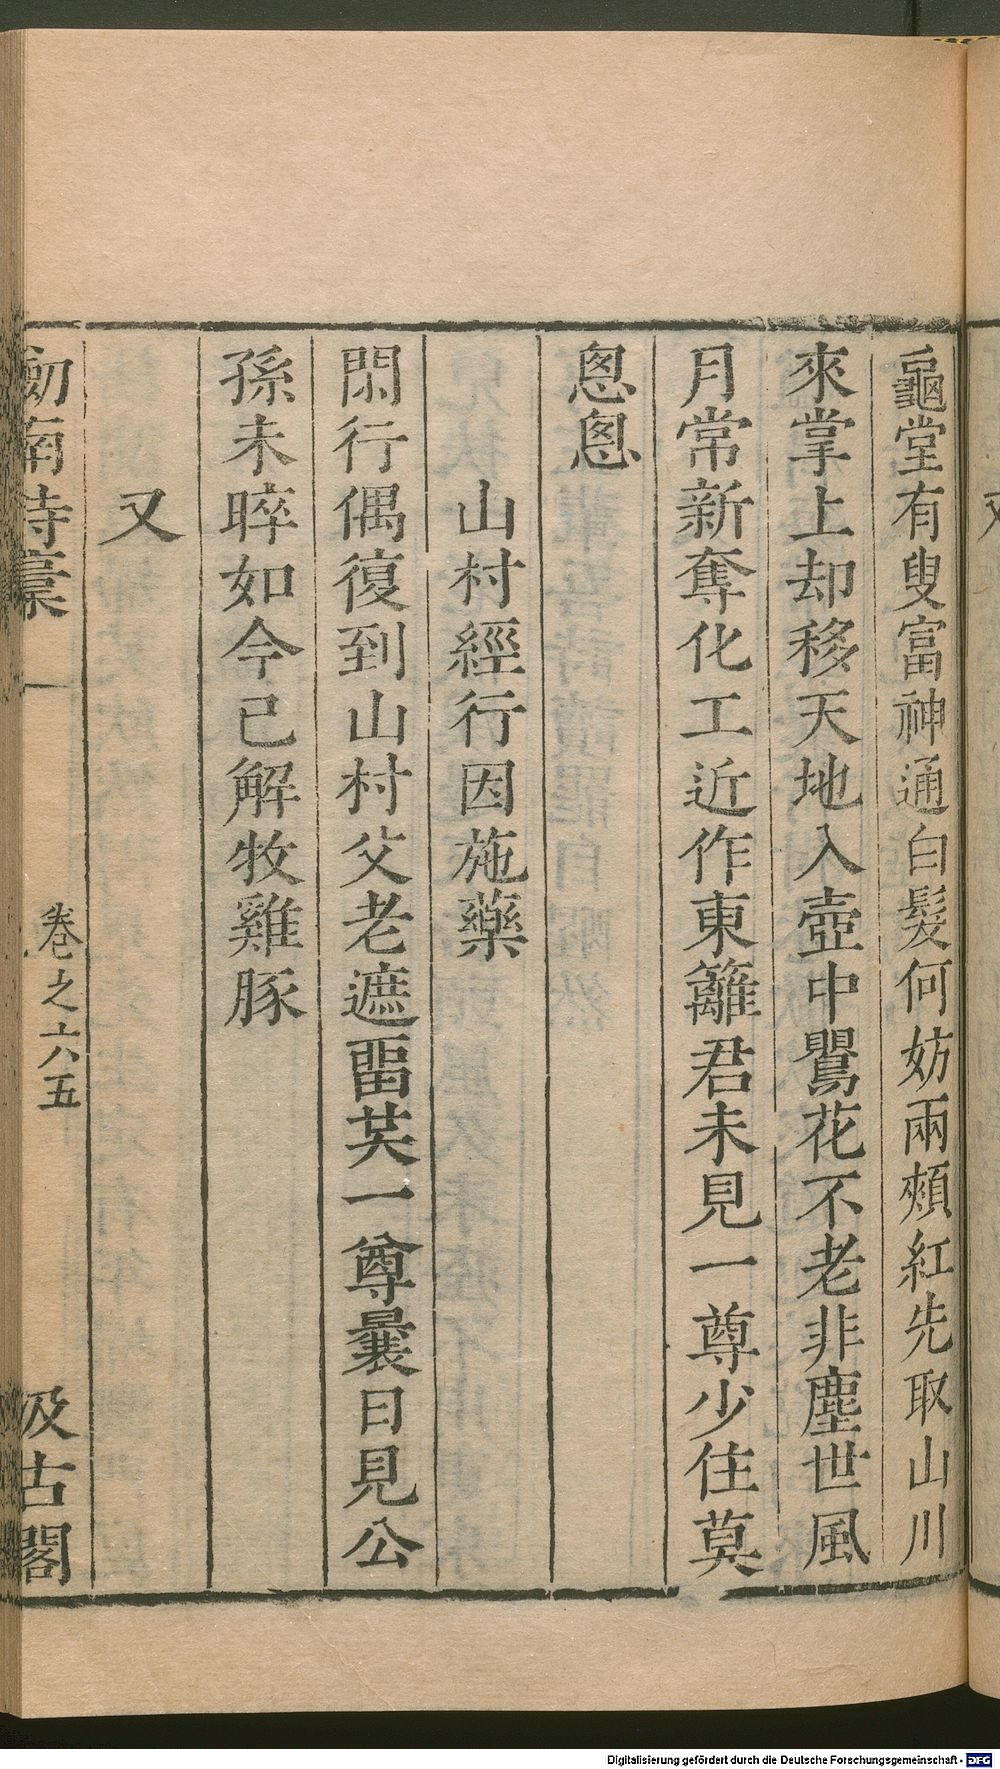 龜堂有叟富神通白髮何妨兩頰紅先取山川
來掌上却移天地入壺中鸎花不老非塵世風
月常新奪化工近作東籬君未見一尊少住莫
悤悤
山村經行因施藥
閑行偶復到山村父老遮畱共一尊曩日見公
孫未晬如今已解牧雞豚
又
劒南詩稾
卷之六五
汲古閣
Digitalisierung gefördert durch die Deutsche Forschungsgemeinschaft - DFG